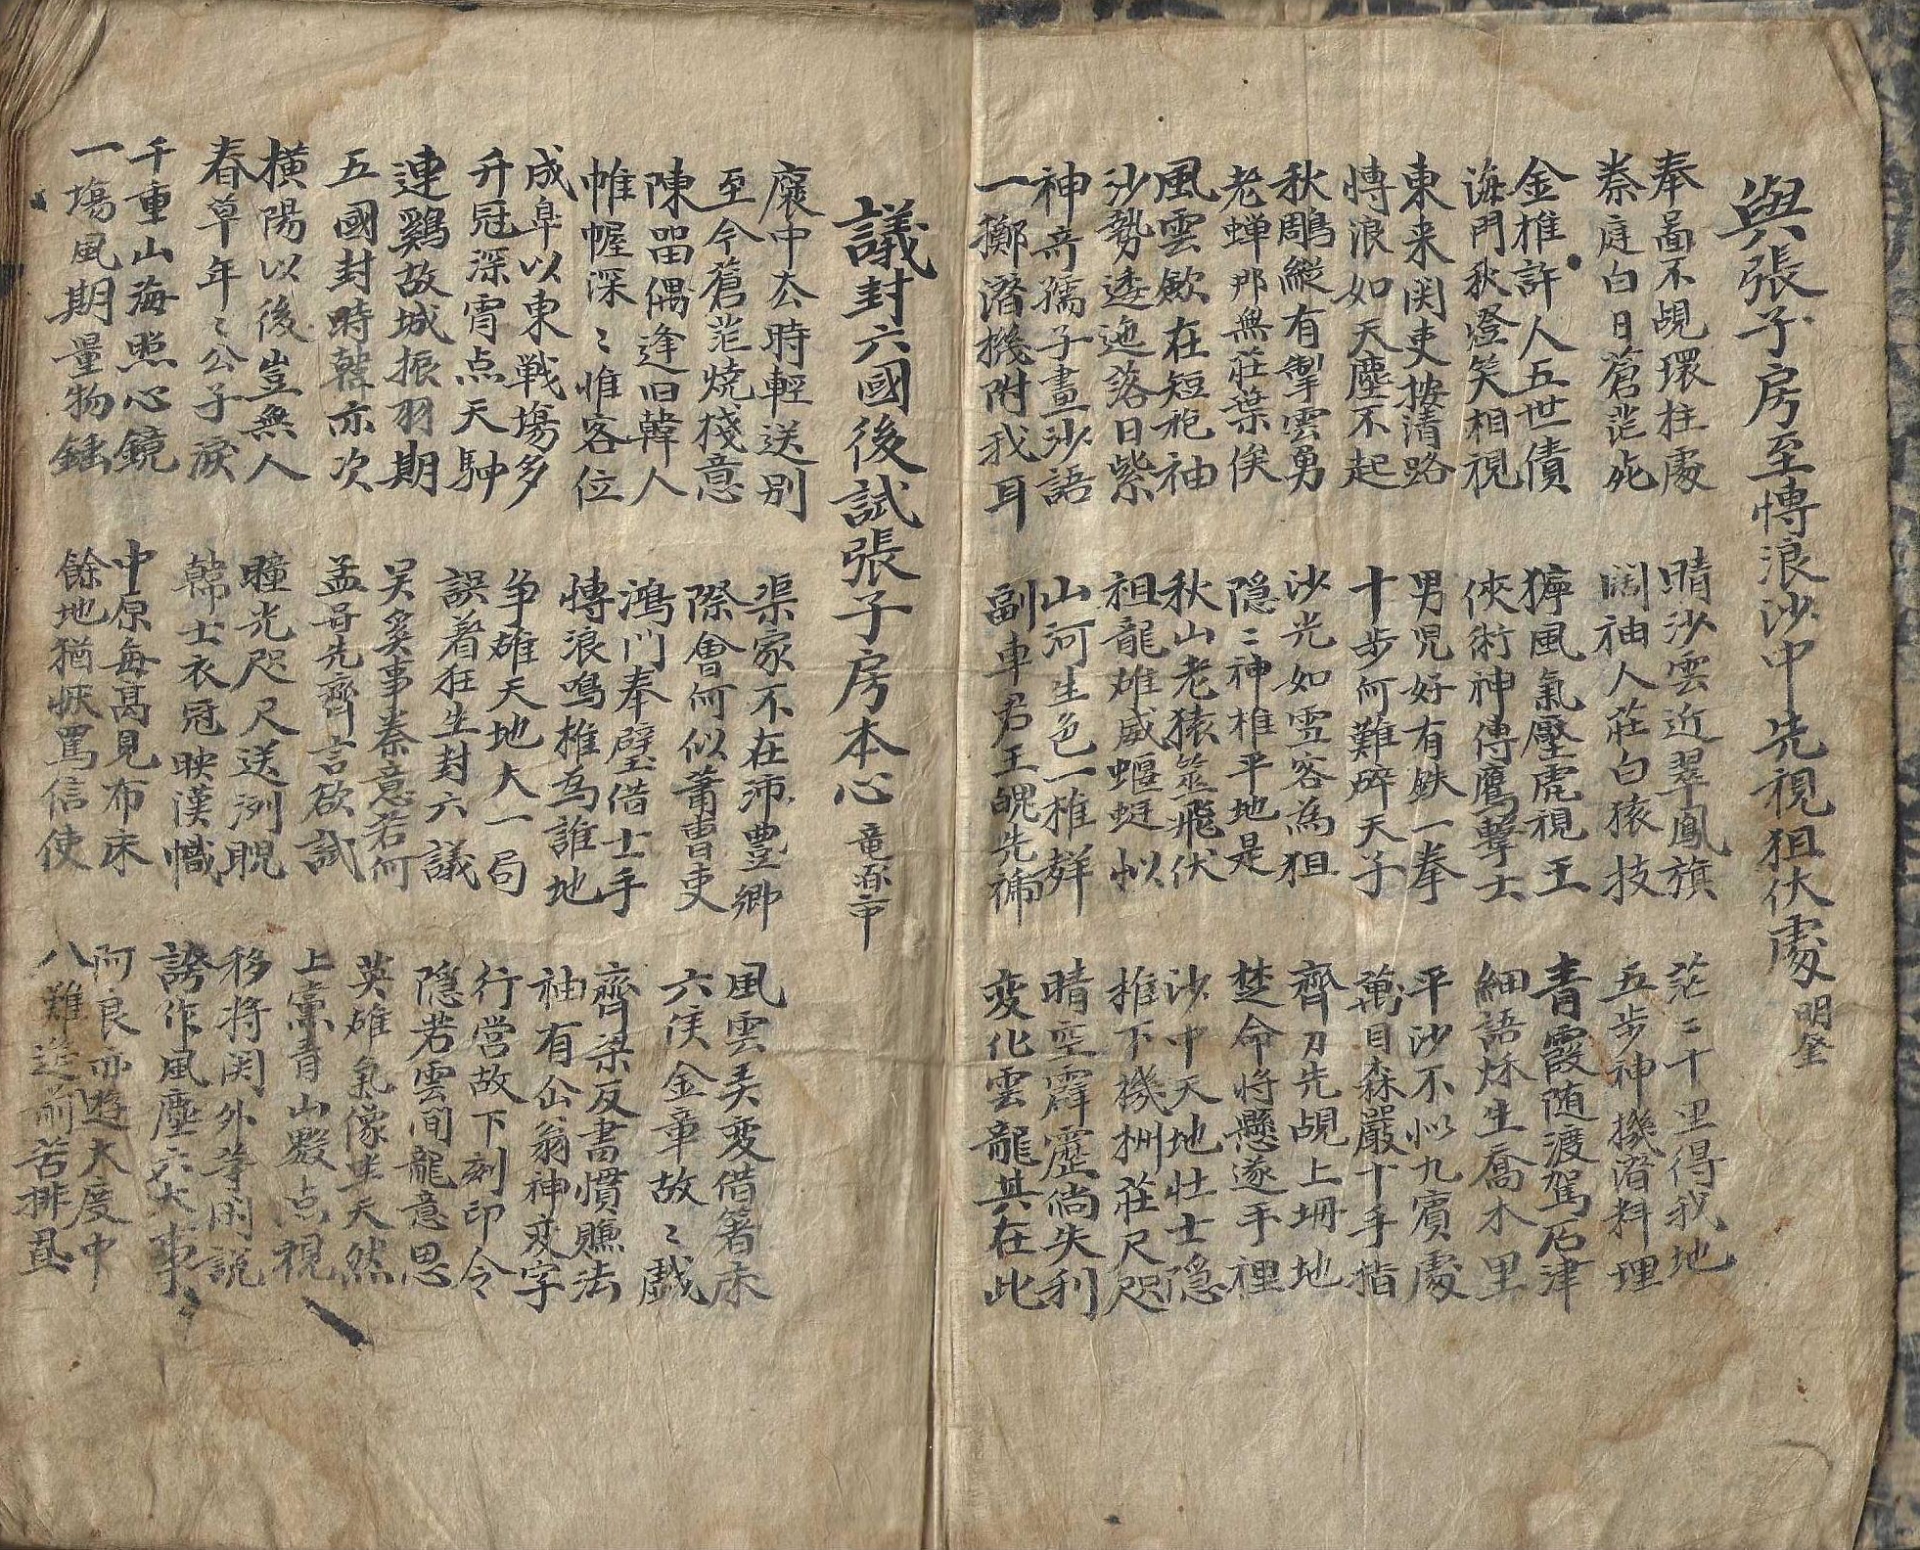 與張子房至博浪沙中先視狙伏處 明奎
奉啚不覩環柱處
秦庭白日蒼茫死
晴沙雲近翠鳳旗
闊袖人莊白猿技
茫〻十里得我地
五步神機潛料理
金椎許人五世債
海門秋燈笑相視
獰風氣壓虎視王
俠術神傳鷹擊士
青霞随渡駕石津
細語秌生喬木里
東来関吏按清路
博浪如天塵不起
男児好有鉄一拳
十步何難碎天子
平沙不似九賓處
萬目森嚴十手指
秋鵰縱有掣雲勇
老蝉那無莊葉俟
沙光如雪客為狙
隠〻神椎平地是
齊刀先覘上坍地
楚命将懸遂手裡
風雲歘在短袍袖
沙勢逶迤落日紫
秋山老猿並飛伏
祖龍雄威蝘蜓似
沙中天地壮士隠
推下機捌莊尺咫
神奇孺子畫沙語
一擲潛機附我耳
山河生色一椎群
副車君王魄先褫
晴空霹靂倘失利
変化雲龍其在此
議封六國後試張子房本心 竜洛市
褒中厺時輕送別
至今蒼茫燒棧意
渠家不在沛豊鄉
際會何似蕭曺吏
風雲未変借箸未
六侯金章故〻戱
陳畱偶逢旧韓人
帷幄深〻惟客位
鴻門奉璧借士手
博浪鳴椎為誰地
齊梁反書慣賺法
袖有公翁神文字
成皐以東戦塲多
弁冠深宵点天駎
争雄天地大一局
誤着狂生封六議
行営故下刻印令
隠若雲間龍意思
連鷄故城振羽期
五國封時韓亦次
吴奚事秦意若何
孟哥先齊言欲試
英雄氣像坐天然
上黨青山數点視
橫陽以後豈無人
春草年〻公子淚
瞳光咫尺送洌睨
韓士衣冠映漢幟
移将関外等閑說
誇作風塵六大事
千重山海照心鏡
一塲風期量物錘
中原每高見布床
餘地猶恢罵信使
阿良亦遊大度中
八難逆前苦排置